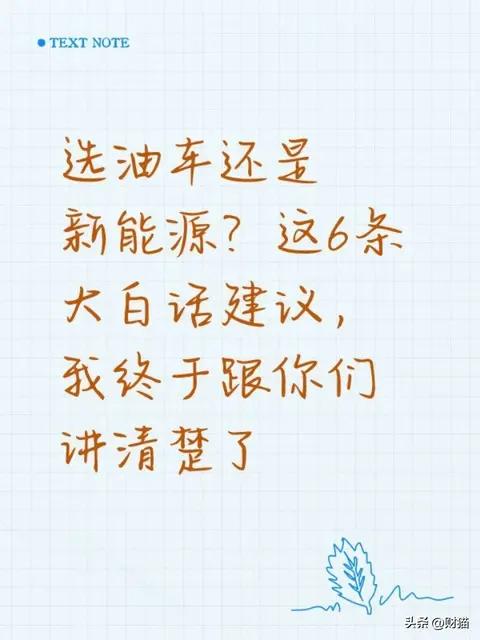 TEXT NOTE
选油车还是
新能源？这6条
大白话建议，
我终于跟你们
讲清楚了
头条 @财猫